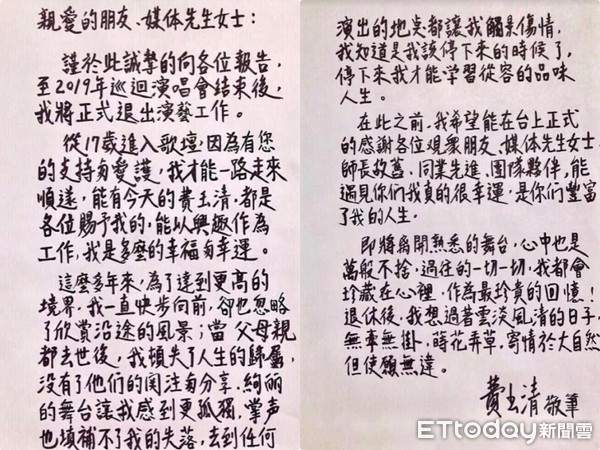 親愛的朋友、媒体先生女士：
謹於此誠摯的向各位報告，
至2019年巡迴演唱會結束後，
我將正式退出演藝工作。
從17歲進入歌壇，因為有您
的支持与愛護，我才能一路走來
順遂，能有今天的費玉清，都是
各位賜予我的，能以興趣作為
工作，我是多麼的幸福与幸運。
這麼多年來，為了達到更高的
境界，我一直快步向前，卻也忽略
了欣賞沿途的風景；當父母親
都去世後，我頓失了人生的歸屬，
沒有了他們的関注与分享，絢丽
的舞台讓我感到更孤獨，掌声
也填補不了我的失落，去到任何
演出的地点都讓我觸景傷情，
我知道是我該停下來的時候了，
停下來我才能学習從容的品味
人生。
在此之前，我希望能在台上正式
的感謝各位观衆朋友、媒体先生女士、
師長故舊、同業先進、團隊夥伴，能
遇見你們我真的很幸運，是你們豐富
了我的人生。
即將離開熟悉的舞台，心中也是
萬般不捨，過往的一切一切，我都會
珍藏在心裡，作為最珍貴的回憶！
退休後，我想過著雲淡風清的日子，
無牽無掛，蒔花弄草，寄情於大自然
但使願無違。
費玉清 敬筆
ETtoday新聞雲